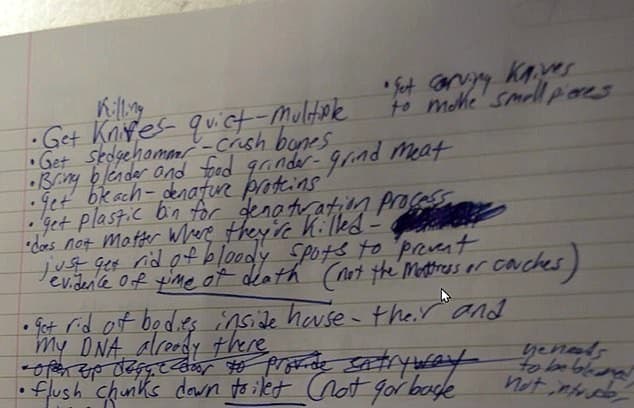 Killing
• Get Knives - quiet - multiple
• get carving knives
to make small pieces
• Get sledgehammer - crush bones
• Bring blender and food grinder - grind meat
• get bleach - denature proteins
• get plastic bin for denaturation process
• does not matter where they're killed -
just get rid of bloody spots to prevent
evidence of time of death (not the mattress or couches)
• get rid of bodies inside house - their and
my DNA already there
• open up doggie door to provide entryway
he needs
to be blamed
not intruder
• flush chunks down toilet (not garbage